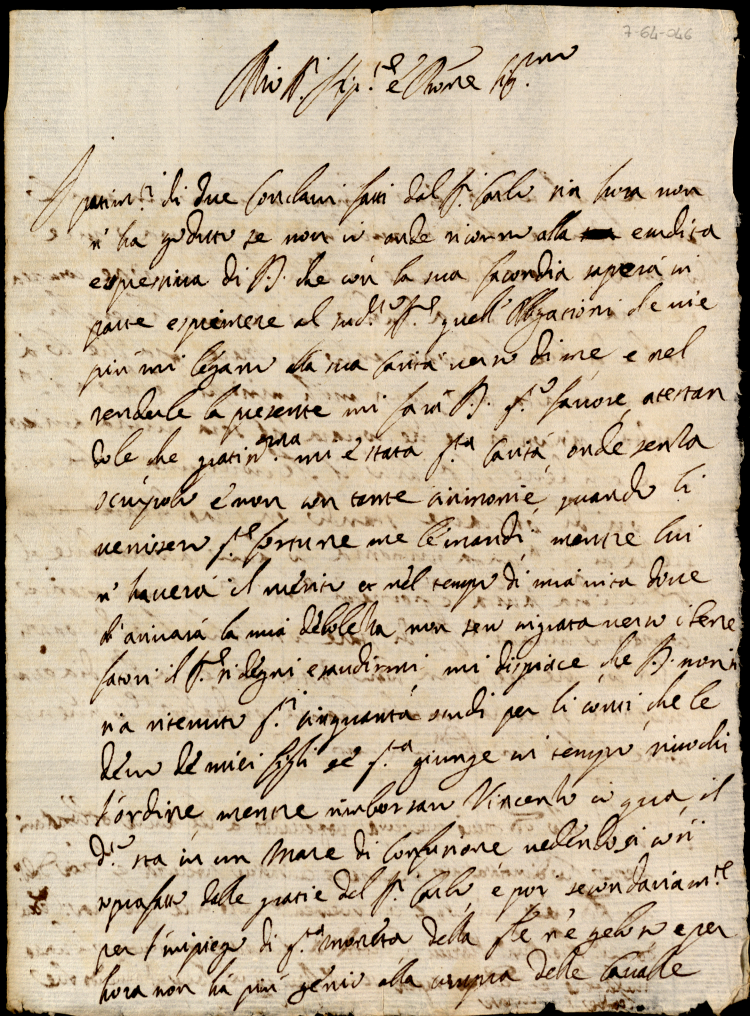 7-64-046
Mio Sr. e Prone
di due Conclavi fatti dal Sr. Carlo sin hora non
n' ha goduto se non io onde ricorro alla erudita
espressiva di V.S. che con la sua facondia saperà in
parte esprimere al sudo. Sre. quell' obligationi che vie
più mi legano alla sua Carità verso di me e nel
renderle la presente mi farà V.S. sto. favore attestan
dole che gratissma. mi è stata sta. Carità onde senza
scrupolo e non con tante cirimonie quando li
venisero ste. fortune me le mandi, mentre lui
n' haverà il merito et nel tempo di mia vita dove
arrivarà la mia debolezza non sero ingrata verso i bene
fatori il Sre. si degni esaudirmi mi dispiace che V.S. non si
sia ritenuto sti. cinquanta scudi per li conti che le
devo de miei figli se sta. giunge in tempo rivochi
l'ordine mentre rimborsaro Vincenzo io qua, il
do. sta in un Mare di Confusione vedendosi così
soprafatto dalle gratie del Sr. Carlo e poi secondariamte.
per l'impiego di sta. moneta della n'è geloso e per
hora non ha più genio alla compra delle Cavalle